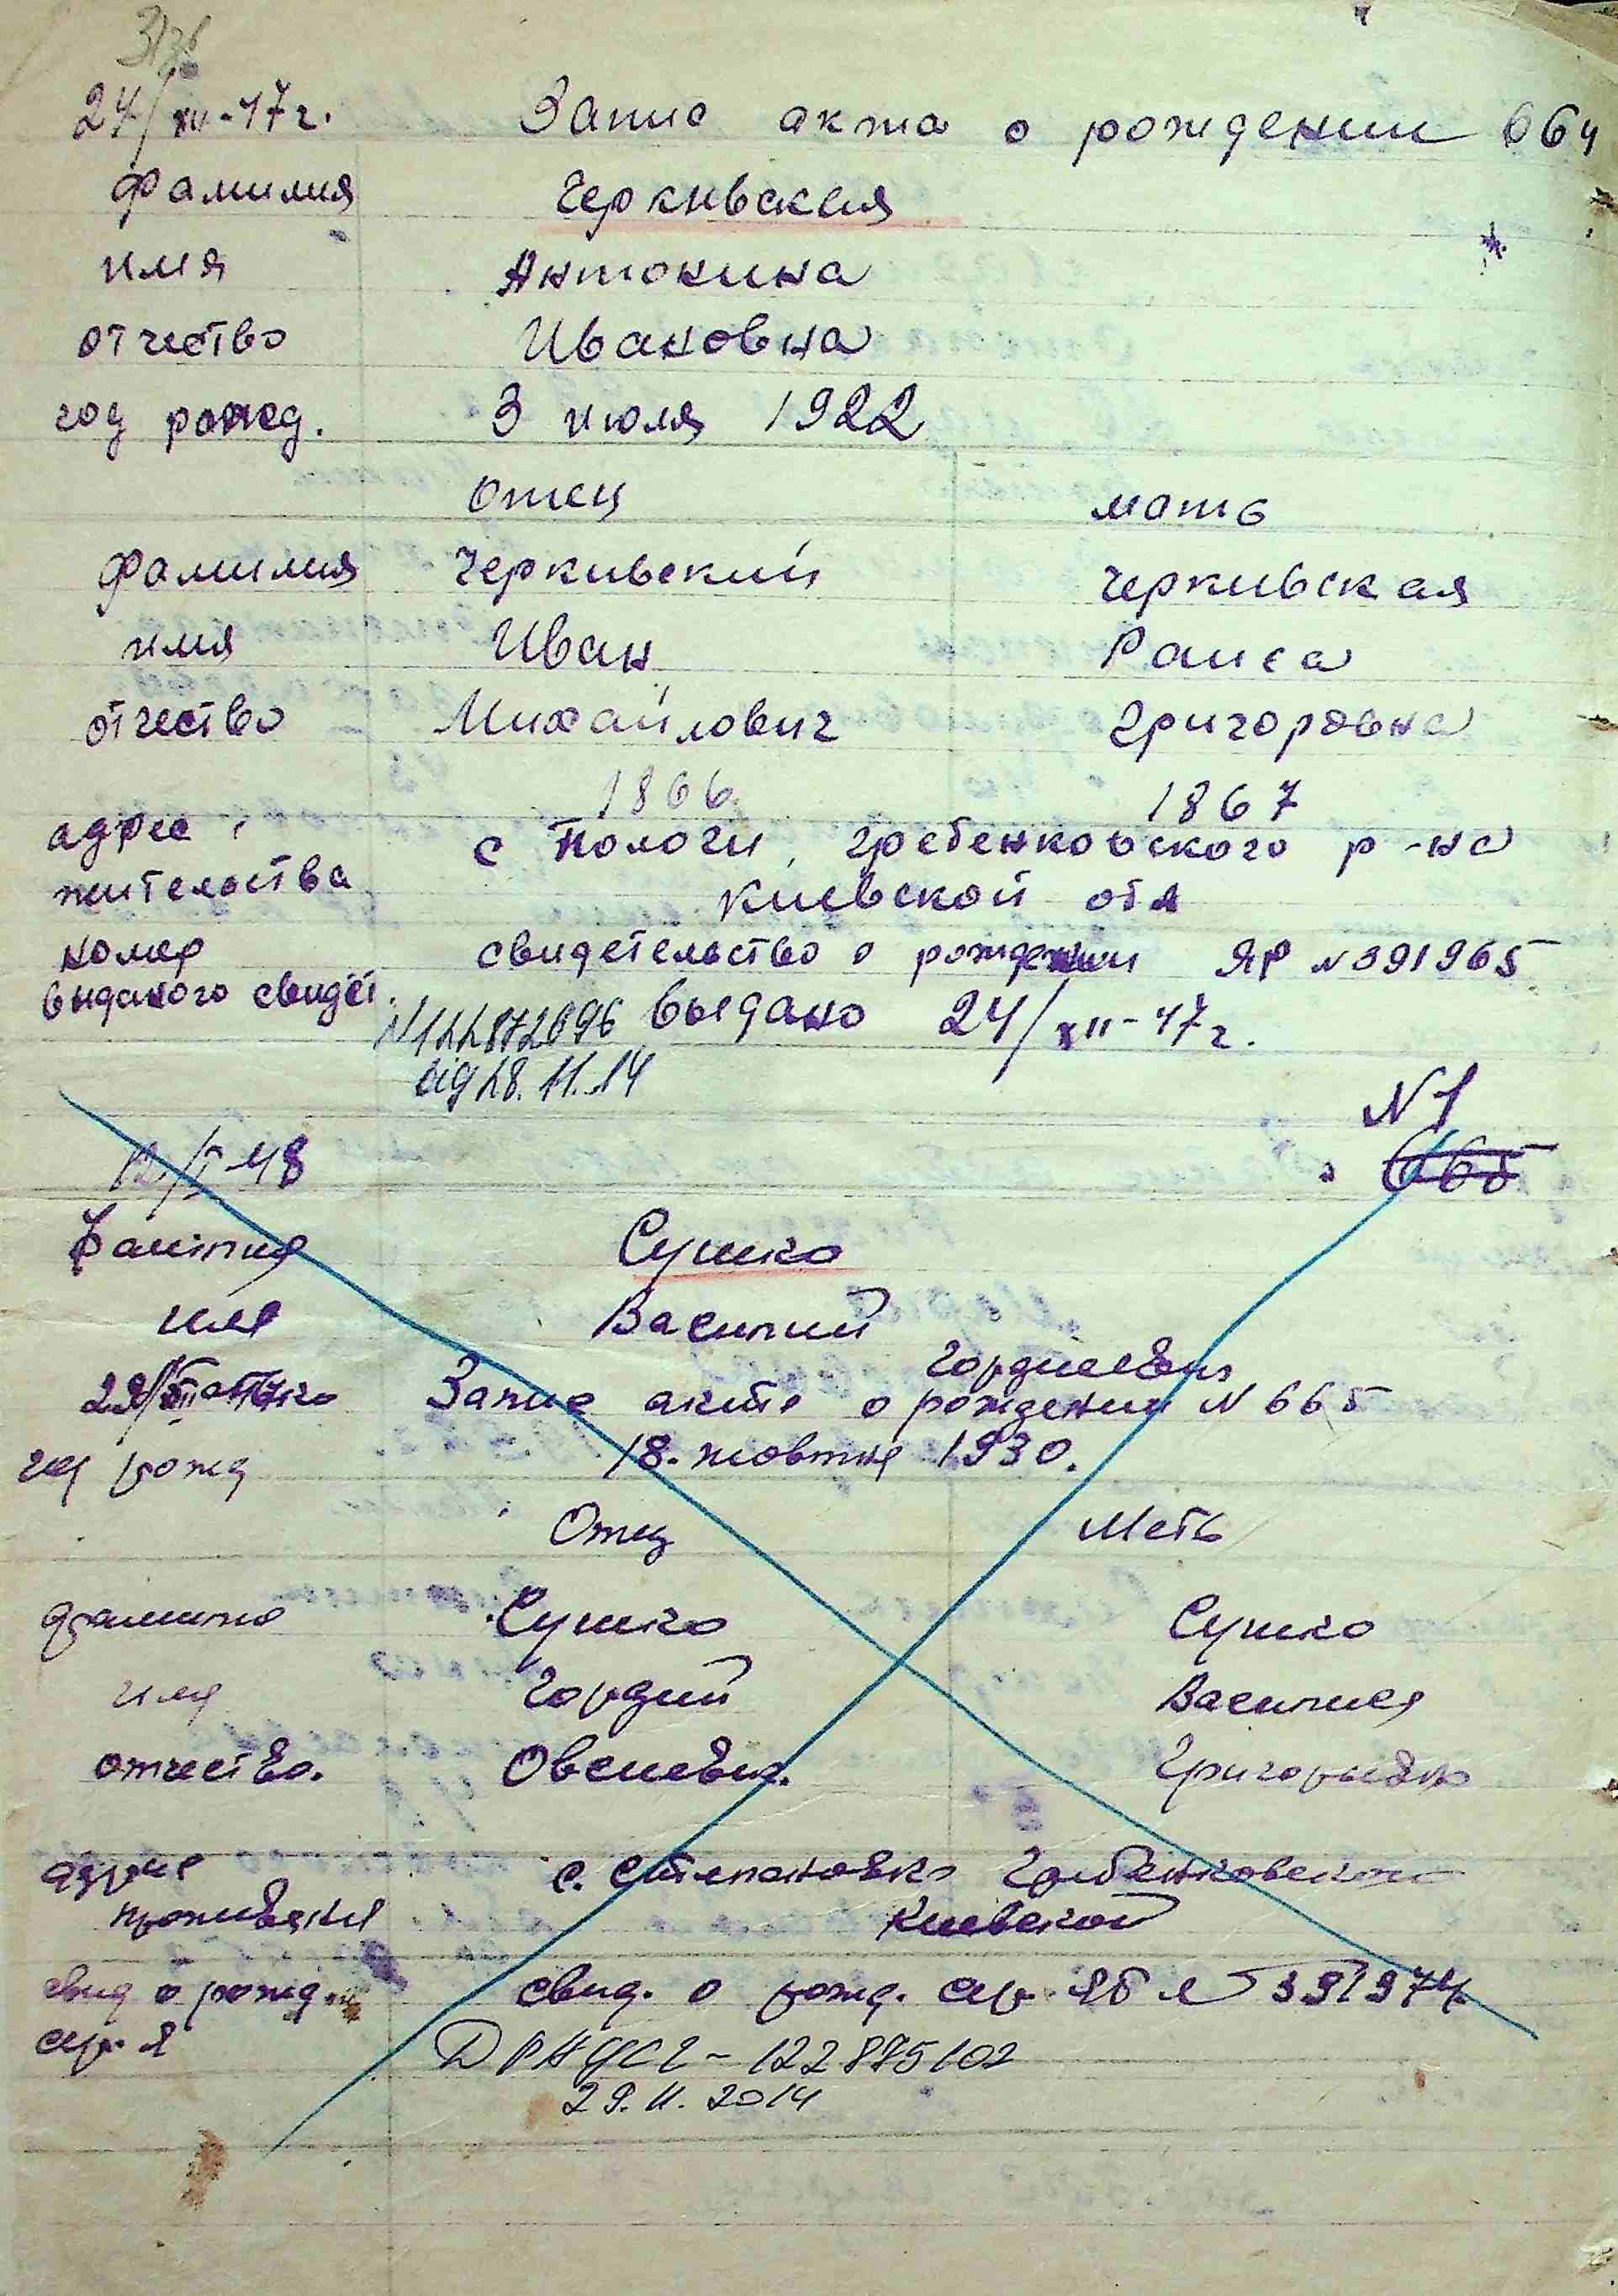 24/XII-47г. Запис акта о рождении 664
фамилия Черкивская
имя Антонина
отчество Ивановна
год рожд. 3 июля 1922
Отец мать
фамилия Черкивский Черкивская
имя Иван Раиса
отчество Михайлович Григоровна
1866 1867
адрес с Пологи, Гребенковского р-на
жительства Киевской обл
номер свидетельство о рождении ЯР №391965
выданого свидет. выдано 24/XII-47г.
N122872696
від 28.11.14
N1
12/I 48 665
Фамилия Сушко
имя Василий
Гордиевич
29/XII 47 Запис акта о рождении N 665
год рожд 18. жовтня 1930.
Отец Мать
фамилия Сушко Сушко
имя Гордий Василися
отчество. Овсиевич. Григорьевна
адрес с. Степановка Гребенковского
проживания Киевской
свид о рожд. свид. о рожд. сер. ЯР № 391974
сер. Я
ДРАЦСГ - 122875102
29.11.2014